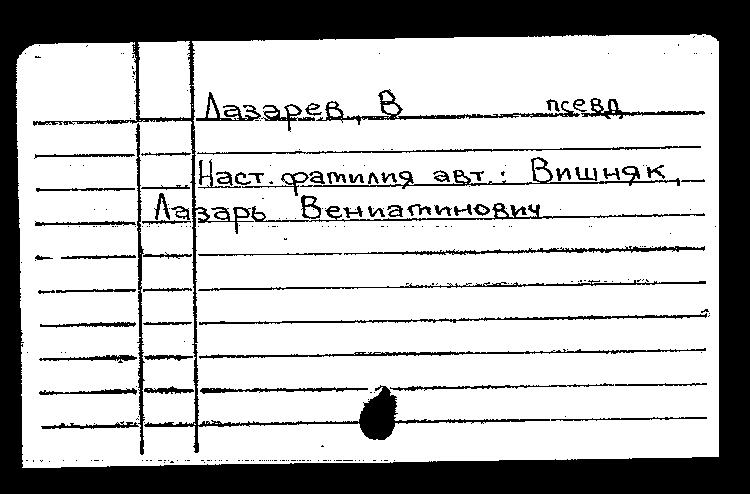 Лазарев, В псевд
Наст. фамилия авт.: Вишняк,
Лазарь Вениаминович